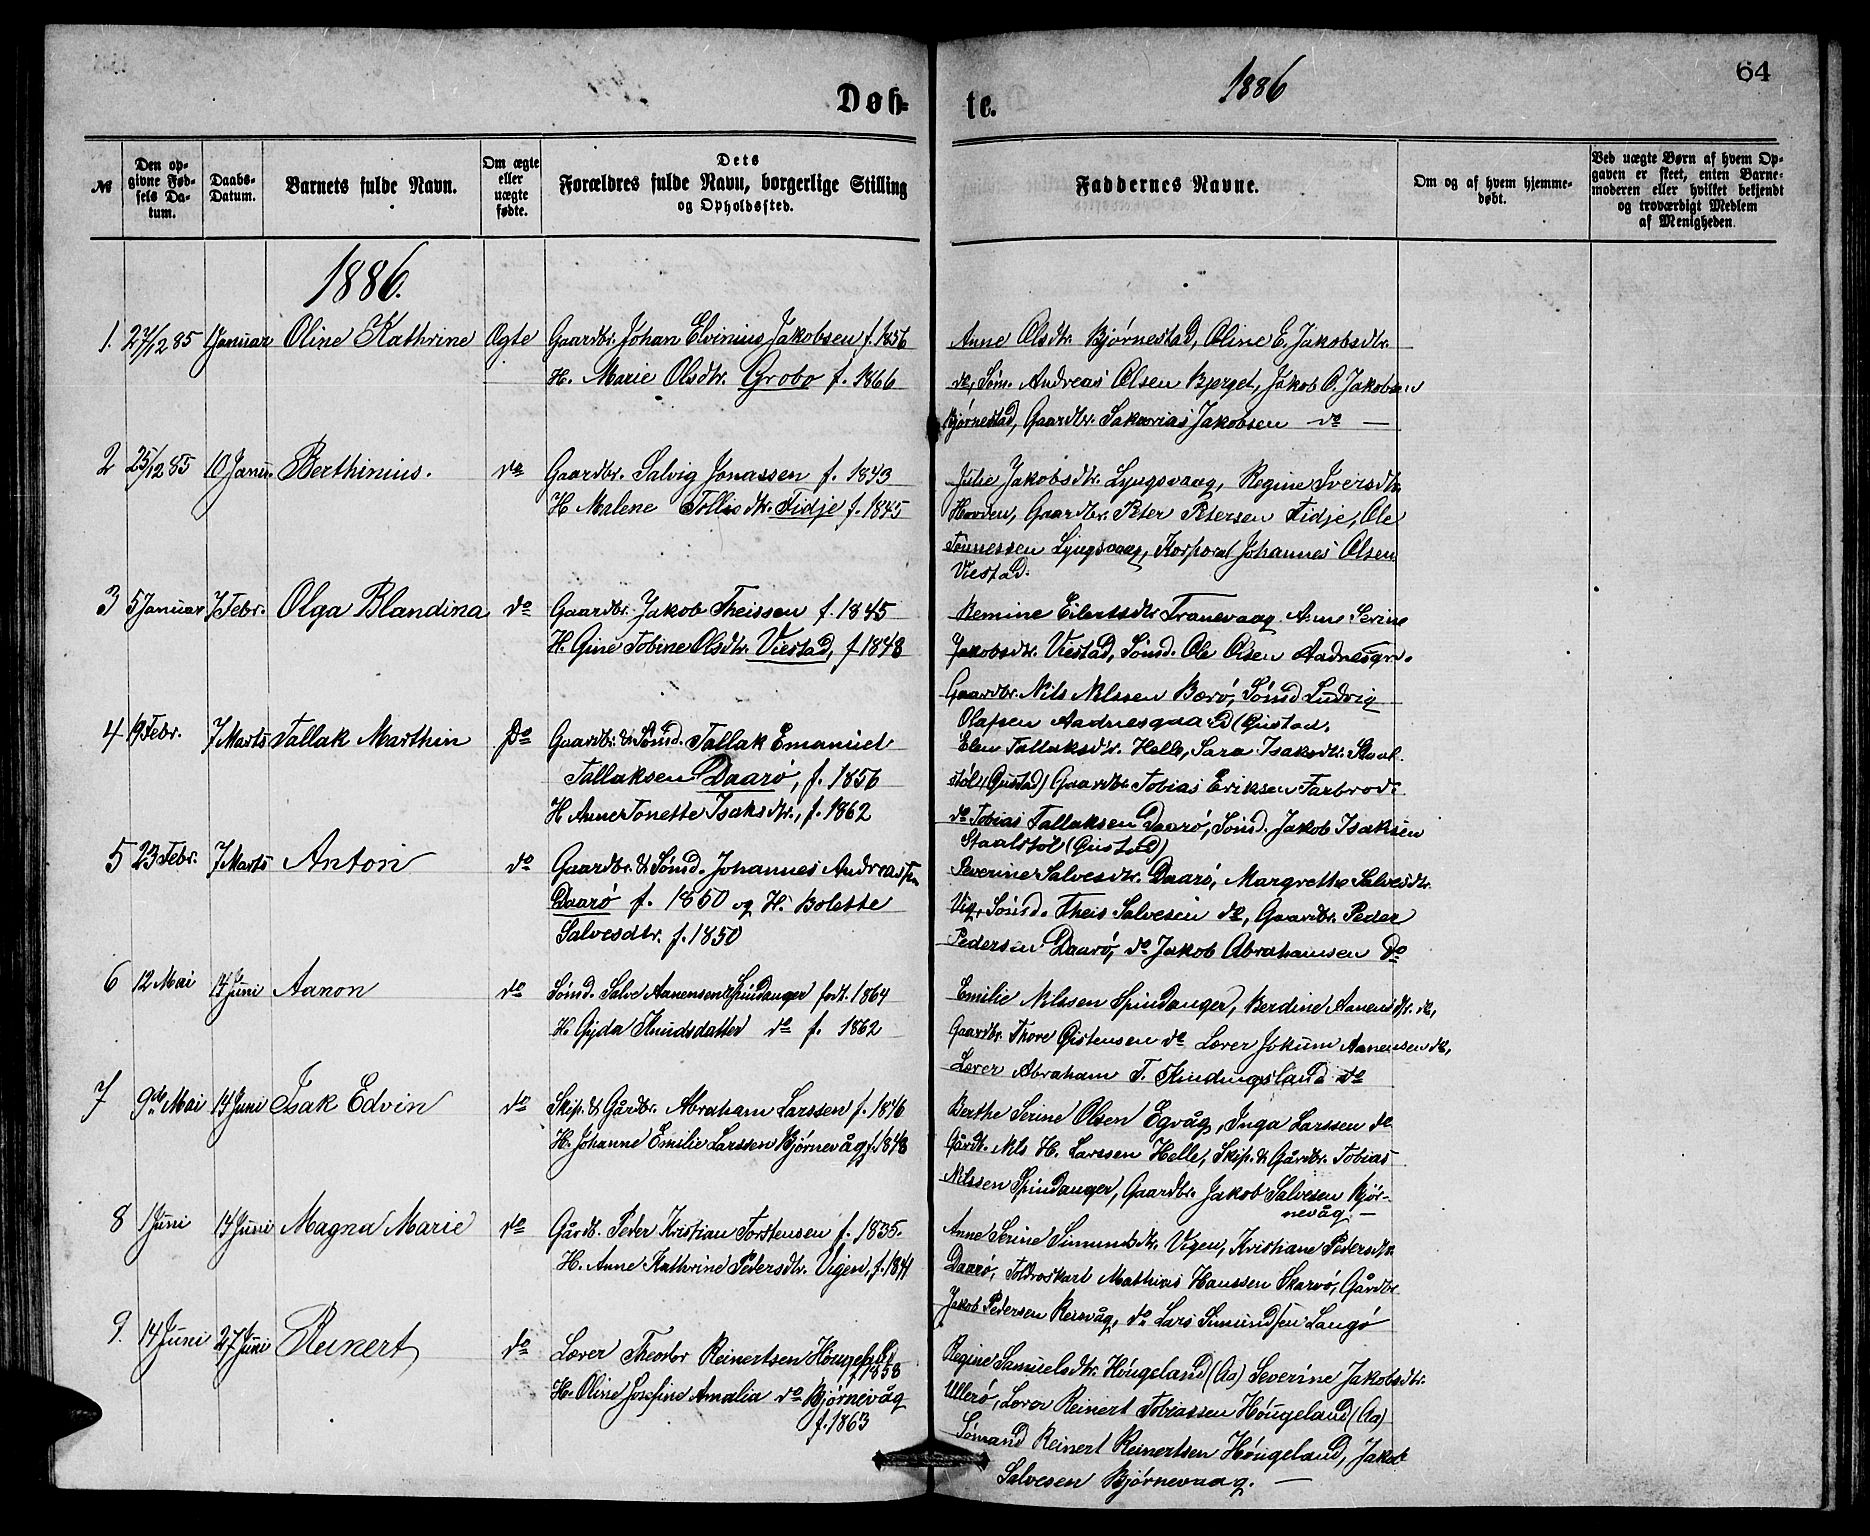 1886
64
Døb-
te.
№
Den op-
givne Fød-
sels Da-
tum.
Daabs-
Datum.
Barnets fulde Navn.
Om ægte
eller
uægte
fødte.
Dets
Forældres fulde Navn, borgerlige Stilling
og Opholdssted.
Faddernes Navne.
Om og af hvem hjemme-
døbt.
Ved uægte Børn af hvem Op-
gaven er skeet, enten Barne-
moderen eller hvilket bekjendt
og troværdigt Medlem
af Menigheden.
1886.
1. 27/12 85 1 Januar Oline Kathrine Ægte Gaardbr. Johan Elvinius Jakobsen f. 1856
H. Marie Olsdtr. Grobo f. 1866
Anne Olsdtr. Bjørnestad, Oline E. Jakobsdtr.
do, Søm. Andreas Olsen Bjerget, Jakob O. Jakobsen
Bjørnestad, Gaardbr. Sakarias Jakobsen do
2 25/12 85 10 Janu. Berthinius. do Gaardbr. Salvig Jonassen f. 1843
H. Malene Tollisdtr. Fidje f. 1845
Julie Jakobsdtr. Lyngsvaag, Regine Iversdtr.
Hovden, Gaardbr. Peter Petersen Fidje, Ole
Tønnessen Lyngsvaag, Korporal Johannes Olsen
Viestad.
3 5 Januar 7 Febr. Olga Blandina do Gaardbr. Jakob Theissen f. 1845
H. Gine Tobine Olsdtr. Viestad, f 1848
Remine Eilertsdtr Tranevaag Anne Serine
Jakobsdtr. Viestad, Sømd. Ole Olsen Aadnesgrd.
Gaardbr. Nils Nilssen Børø, Sømd Ludvig
Olafsen Aadnesgaard (Gustad.
4 19 Febr. 7 Marts Tallak Marthin Do Gaardbr. & Sømd. Tallak Emanuel
Tallaksen Daarø, f. 1856
H. Anne Tonette Isaksdtr., f. 1862
Elen Tallaksdtr. Helle, Sara Isaksdtr. Staal-
støl (Gustad) Gaardbr. Tobias Eriksen Farbrod.
do Tobias Tallaksen Daarø, Sømd. Jakob Isaksen
Staalstøl (Gustad)
5 23 Febr. 7 Marts Anton do Gaardbr. & Sømd. Johannes Andreassen
Daarø f. 1850 og H. Bolette
Salvesdtr. f. 1850
Severine Salvesdtr. Daarø, Margrethe Salvesdtr.
Vig, Sømd. Theis Salvesen do, Gaardbr. Peder
Pedersen Daarø, do Jakob Abrahamsen Do
6 12 Mai 14 Juni Aanon do Sømd. Salve Aanensen Spindanger født. 1864
H. Gyda Knudsdatter do f. 1862
Emilie Nilssen Spindanger, Berdine Aanensdtr. do,
Gaardbr. Thore Gistensen do Lærer Jokum Aanensen do,
Lærer Abraham T. Kindingsland do
7 9de Mai 14 Juni Isak Edvin do Skip. & Gårdbr. Abraham Larssen f. 1846
H. Johanne Emilie Larssen Bjørnevåg f. 1848
Berthe Serine Olsen Egvåg, Inga Larssen do
Gårdb. Nils H. Larssen Helle, Skip. & Gårdbr. Tobias
Nilssen Spindanger, Gaardbr. Jakob Salvesen Bjør-
nevåg. —
8 1 Juni 14 Juni Magna Marie do Gårdb. Peder Kristian Torstensen f. 1835.
H. Anne Kathrine Pedersdtr. Vigen, f. 1841
Anne Serine Simundsdtr. Vigen, Kristiane Pedersdtr.
Daarø, Toldroskarl Mathias Hanssen Skarvø, Gårdbr.
Jakob Pedersen Rersvåg, do Lars Simundsen Langø
9. 14 Juni 27 Juni Reinert do Lærer Theodor Reinertsen Høugeland
f 1858
H. Oline Josefine Amalia do Bjørnevåg
f. 1863
Regine Samuelsdtr. Høugeland (Aa) Severine Jakobsdtr.
Ullerø, Lærer Reinert Tobiassen Høugeland (Aa)
Sømand Reinert Reinertsen Høugeland, Jakob
Salvesen Bjørnevaag. —